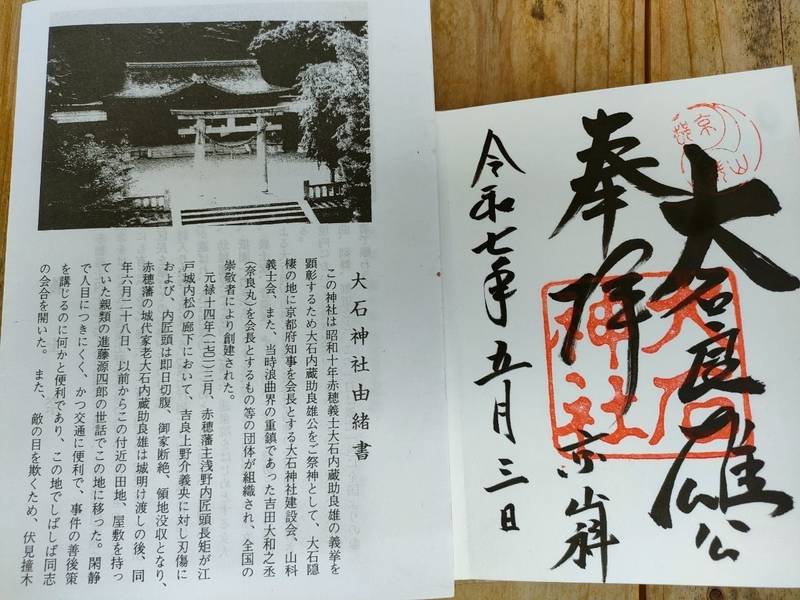 大石神社由緒書
この神社は昭和十年赤穂義士大石内蔵助良雄の義挙を
顕彰するため大石内蔵助良雄公をご祭神として、大石隠
棲の地に京都府知事を会長とする大石神社建設会、山科
義士会、また、当時浪曲界の重鎮であった吉田大和之丞
(奈良丸)を会長とするもの等の団体が組織され、全国の
崇敬者により創建された。
元禄十四年(一七〇一)三月、赤穂藩主浅野内匠頭長矩が江
戸城内松の廊下において、吉良上野介義央に対し刃傷に
および、内匠頭は即日切腹、御家断絶、領地没収となり、
赤穂藩の城代家老大石内蔵助良雄は城明け渡しの後、同
年六月二十八日、以前からこの付近の田地、屋敷を持っ
ていた親類の進藤源四郎の世話でこの地に移った。閑静
で人目につきにくく、かつ交通に便利で、事件の善後策
を講じるのに何かと便利であり、この地でしばしば同志
の会合を開いた。 また、敵の目を欺くため、伏見撞木
大石良雄公
奉拝
京山科
大石
神社
令和七年五月三日